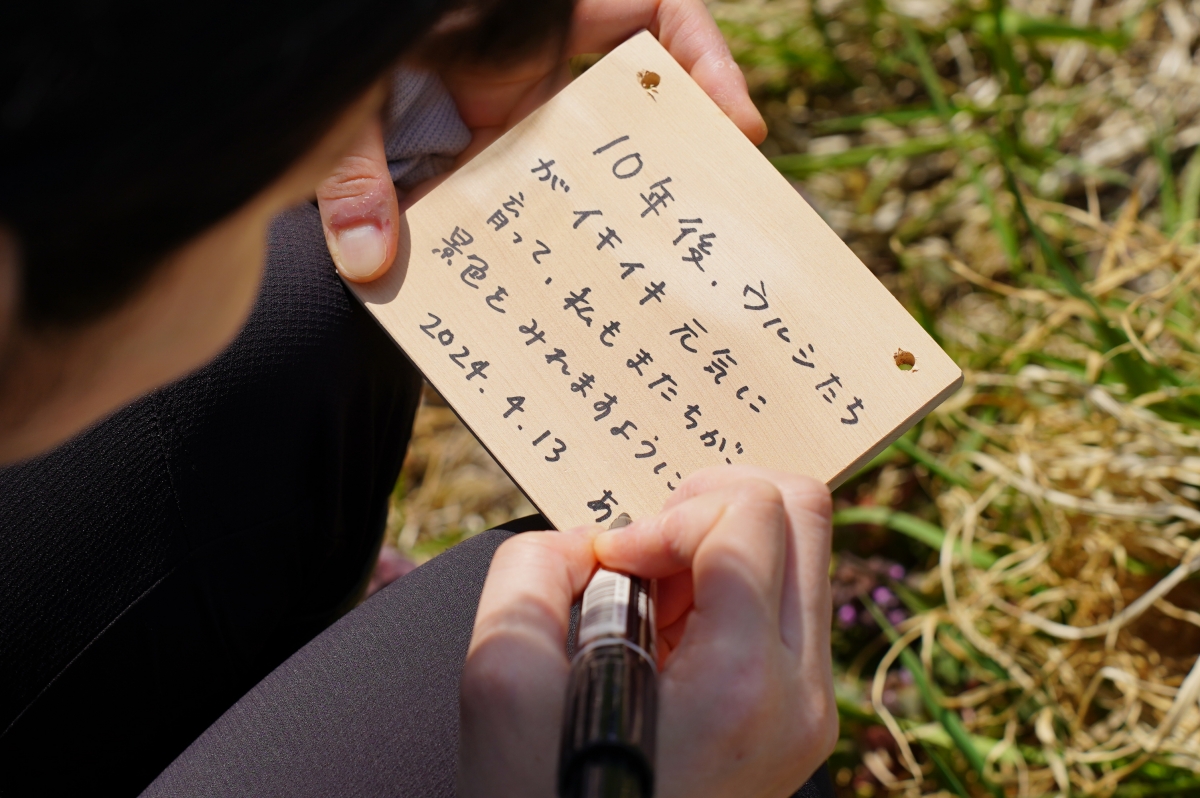 10年後、ウルシたち
がイキイキ元気に
育って、私もまたちがう
景色をみれますように
2024.4.13
あ